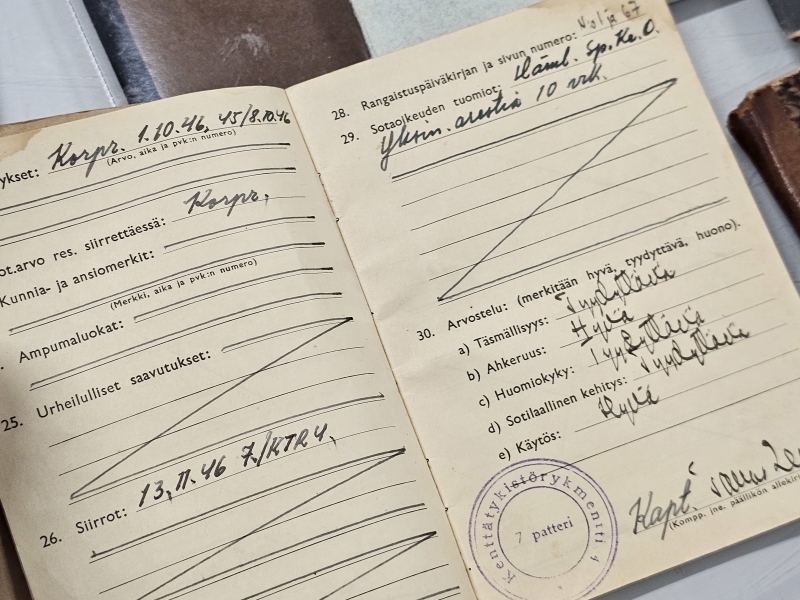 ykset: Korpr. 1.10.46, 45/8.10.46
(Arvo, aika ja pvk:n numero)
ot.arvo res. siirrettäessä: Korpr.
Kunnia- ja ansiomerkit:
(Merkki, aika ja pvk:n numero)
Ampumaluokat:
25. Urheilulliset saavutukset:
26. Siirrot: 13.11.46 7./KTR 4.
28. Rangaistuspäiväkirjan ja sivun numero: 67
29. Sotaoikeuden tuomiot: Häml. Sp.Ke.O.
Yksin. arestia 10 vrk.
30. Arvostelu: (merkitään hyvä, tyydyttävä, huono).
a) Täsmällisyys: Tyydyttävä
b) Ahkeruus: Hyvä
c) Huomiokyky: Tyydyttävä
d) Sotilaallinen kehitys: Tyydyttävä
e) Käytös: Hyvä
Kapt.
(Komp. jne. päällikön allekir
Kenttätykistörykmentti 4
7 patteri